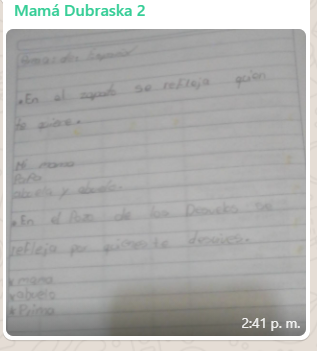 Mamá Dubraska 2
En el se refleja quien
te quiere.
Mi mama
Papa
abuela y abuelo.
En el Pozo de los Deseos se
refleja por quienes te desvives.
* mama
* abuela
* Primo
2:41 p. m.